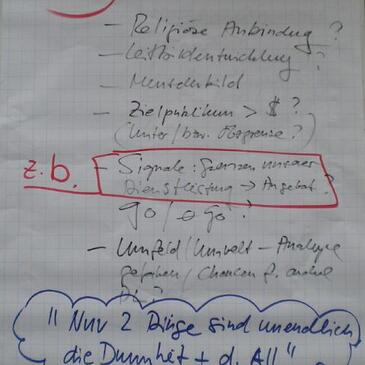 - Religiöse Anbindung ?
- Leitbildentwicklung ?
- Menschenbild
- Zielpublikum > $ ?
(Unter/bzw. Obergrenze?)
z.b. - Signale: Grenzen unserer
Dienstleistung → Angebot ?
go / no go ?
- Umfeld/Umwelt - Analyse
gefahren / Chancen f. andere
"Nur 2 Dinge sind unendlich
die Dummheit + d. All"